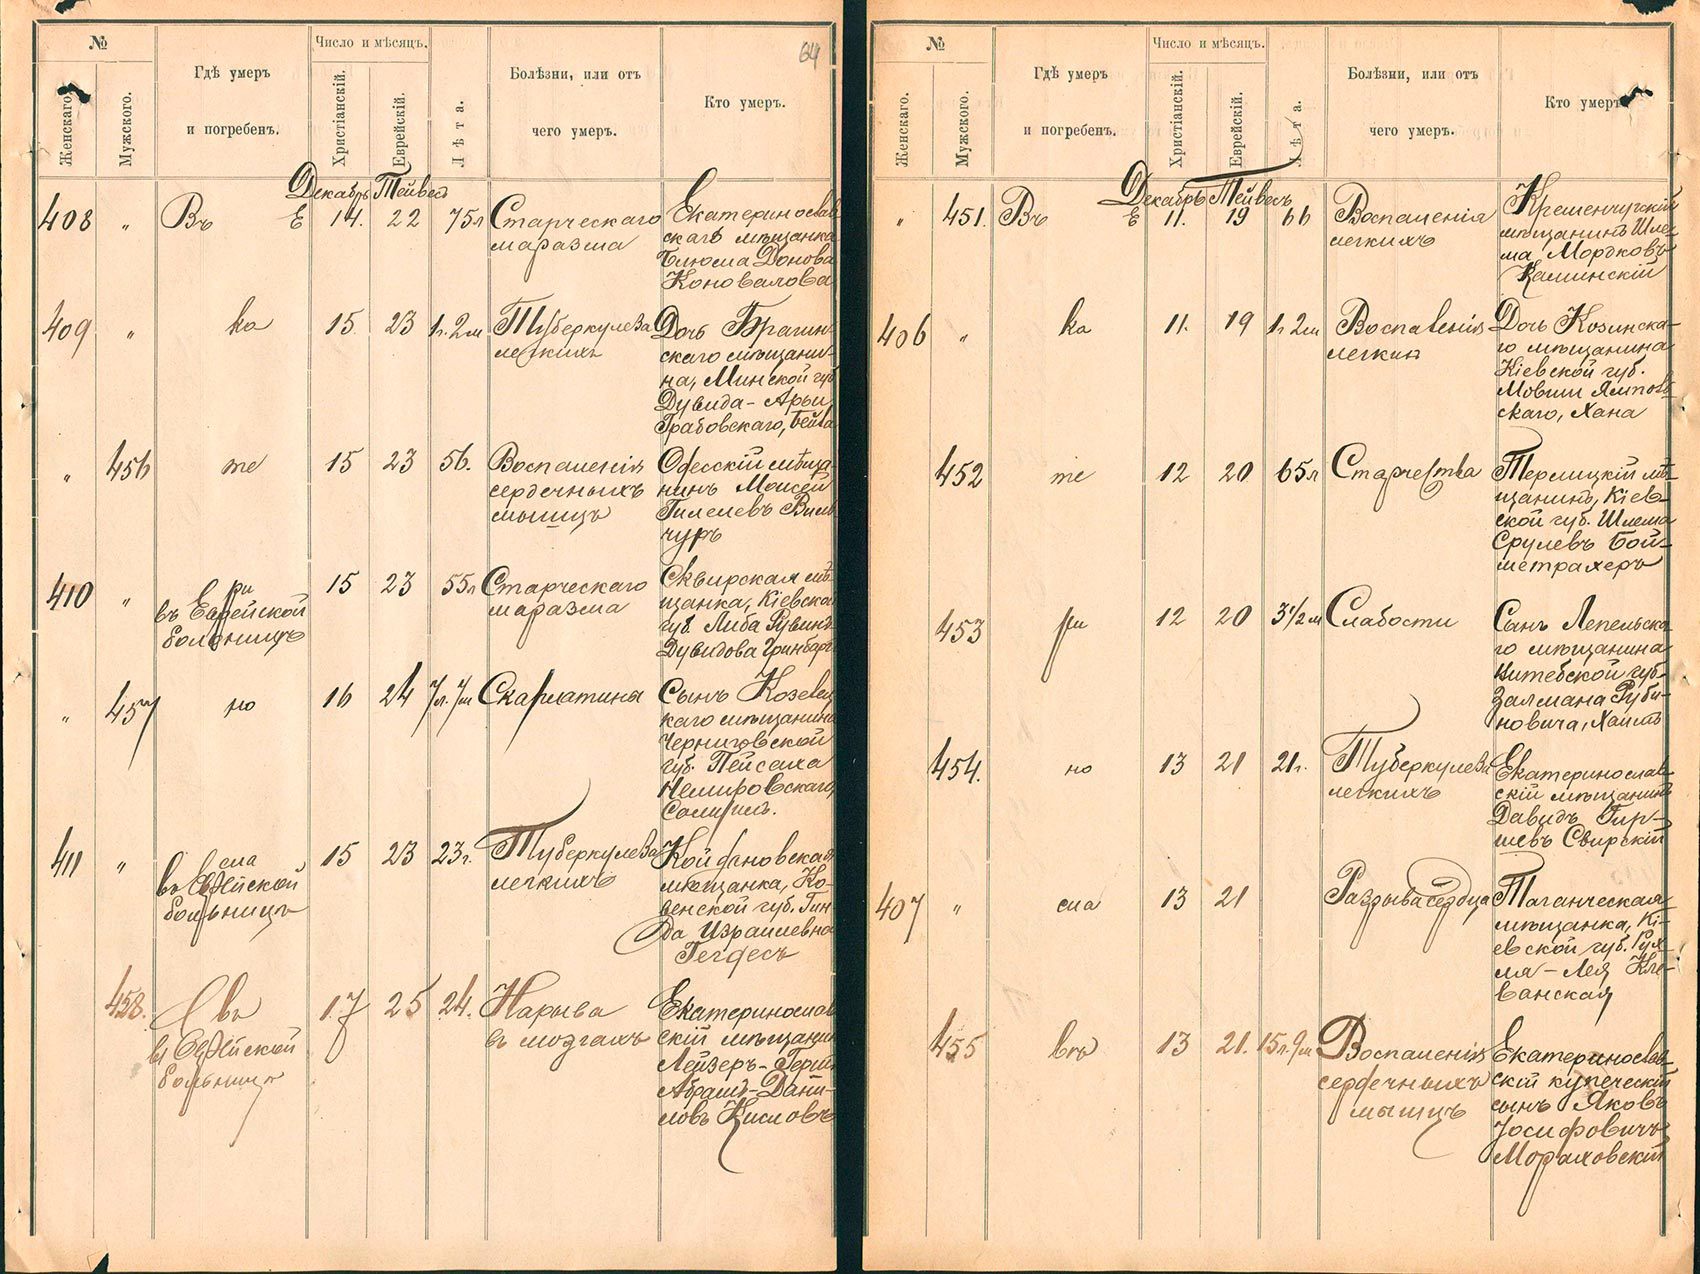 64
№
Число и мѣсяцъ.
Гдѣ умеръ
и погребенъ.
Болѣзни, или отъ
чего умеръ.
Кто умеръ.
Женскаго.
Мужского.
Христіанскій.
Еврейскій.
Лѣта.
Декабрь Тейвесъ
408 " Въ Е 14. 22 75л Старческаго
маразма
Екатеринослав
скаго мѣщанка
Блюма Донова
Коновалова
409 " ка 15 23 1г. 2м Туберкулеза
легкихъ
Дочь Брагин-
скаго мѣщани-
на, Минской губ
Дувида-Арьи
Грабовскаго, Бейла
" 456 те 15 23 56. Воспаленія
сердечныхъ
мышцъ
Одесскій мѣща
нинъ Моисей
Гилелевъ Вин
чуръ
410 " ри
въ Еврейской
больницѣ
15 23 55л Старческаго
маразма
Сквирская мѣ-
щанка, Кіевска
губ. Либа Рувинъ
Дувидова Гринбаргъ
" 457 но 16 24 7л. 7м Скарлатины
Сынъ Козелец
каго мѣщанина
Черниговской
губ. Пейсаха
Немировскаго,
411 " сла
въ Еврейской
больницѣ
15 23 23г. Туберкулеза
легкихъ
мѣщанка, Ко-
венской губ. Гин
да Израилевна
Гегдесъ
458. въ
въ Еврейской
больницѣ
17 25 24. Нарыва
въ мозгахъ
Екатеринослав
скій мѣщанин
Лейзеръ-Герш
Абрамъ-Дани-
ловъ Кисловъ
№
Число и мѣсяцъ.
Гдѣ умеръ
и погребенъ.
Болѣзни, или отъ
чего умеръ.
Кто умеръ.
Женскаго.
Мужского.
Христіанскій.
Еврейскій.
Лѣта.
Декабрь Тейвесъ
" 451. Въ Е 11. 19 66 Воспаленія
легкихъ
Кременчугскій
мѣщанинъ Шле
ма Мордковъ
Каминскій
406 " ка 11. 19 1г 2м Воспаленія
легких
Дочь Козинска-
го мѣщанина
Кіевской губ.
Мовши Ямполь-
скаго, Хана
452 те 12 20 65л Старчества
Терлицкій мѣ-
щанинъ, Кіев-
ской губ. Шлема
Срулевъ Бой-
метрахеръ
453 ри 12 20 3½м Слабости
Сынъ Лепельска-
го мѣщанина
Витебской губ.
Залмана Руби-
новича, Хаимъ
454. но 13 21 21г. Туберкулеза
легкихъ
Екатеринослав-
скій мѣщанинъ
Давидъ Гир-
шевъ Свирскій
407 " сла 13 21 Разрыва сердца
Таганческая
мѣщанка, Кі-
евской губ. Рух-
ля-Лея Кле-
ванская
455 въ 13 21. 15л. 9м Воспаленія
сердечныхъ
мышцъ
Екатеринослав-
скій купеческій
сынъ Яковъ
Іосифовичъ
Мораховскій